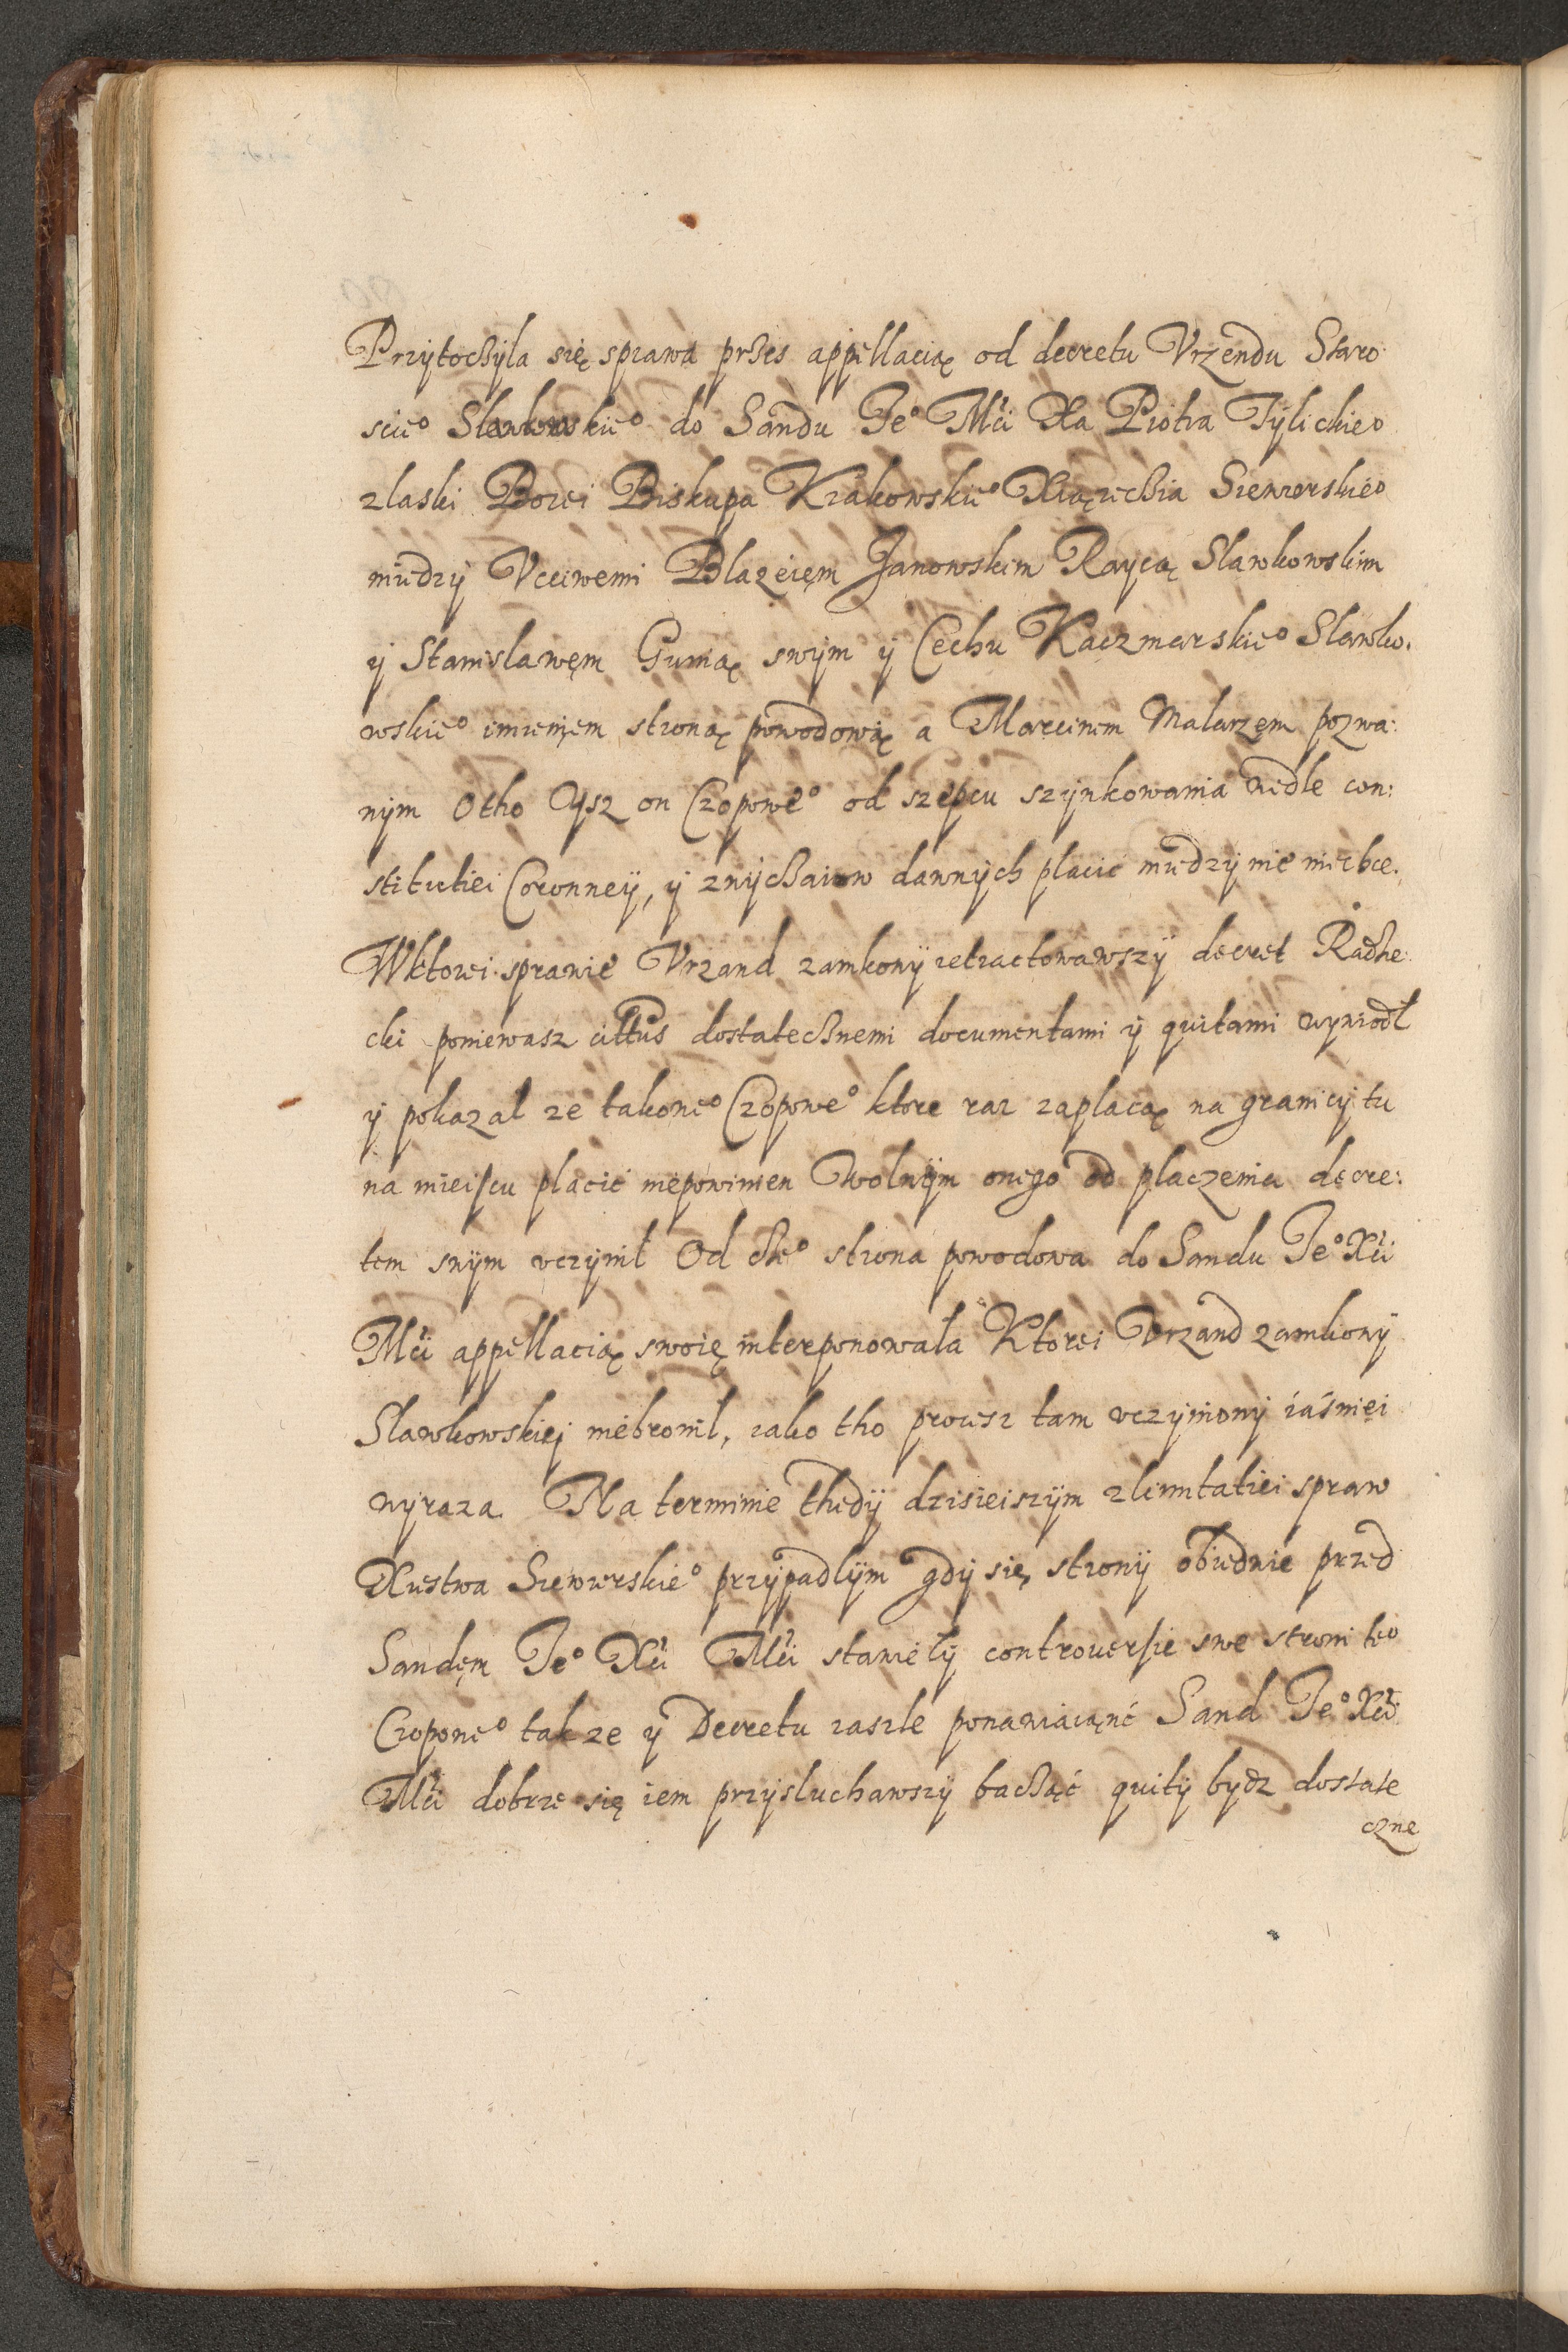 Przÿtoczÿla się sprawa przes appellacią od decretu Vrzendu Staro
scie° Slawkowskie° do Sandu Je° Mći Xa Piotra Tÿlickie°
zlaski Bozei Biskupa Krakowskie° Xiązęczia Siewierskie°
miedzÿ Vcciwemi Blazeięm Janowskim Raycą Slawkowskim
ÿ Stanislawęm Gumią swÿm ÿ Cechu Kaczmarskie° Slawko:
wskie° imieniem stroną powodową a Marcinem Malarzem pozwa:
nÿm Otho ÿsz on Czopowe° od szepcu szÿnkowania wedle con:
stitutiei Coronneÿ, ÿ zwÿczaiow dawnÿch placić miedzÿ nie niechce.
Wktorei sprawie Vrzand zamkowÿ retractowawszÿ decret Radzie
cki poniewasz cittus dostatecznemi documentami ÿ quitami wywiodł
ÿ pokazal ze takowe° Czopowe° ktore raz zaplacą na granicÿ tu
na mieiscu placić niepowinien Wolnÿm onego od placzenia decre:
tem swÿm vczÿnił Od cze° strona powodowa do Sandu Je° Xći
Mći appellacią swoię interponowała Ktorei Vrzand zamkowÿ
Slawkowskiej niebronił, iako tho proces tam vczÿnionÿ iaśniei
wÿraza. Na terminie thedÿ dzisieiszÿm zlimitatiei spraw
Xiestwa Siewierskie° przÿpadlÿm gdÿ się stronÿ obiednie przed
Sandęm Je° Xći Mći stawiełÿ controuersie swe stroni te°
Czopowe° tak ze ÿ Decretu zaszle ponawiaiąnć Sand Je° Xći
Mći dobrze się iem przÿsluchawszÿ bacząć quitÿ bydz dostate
czne